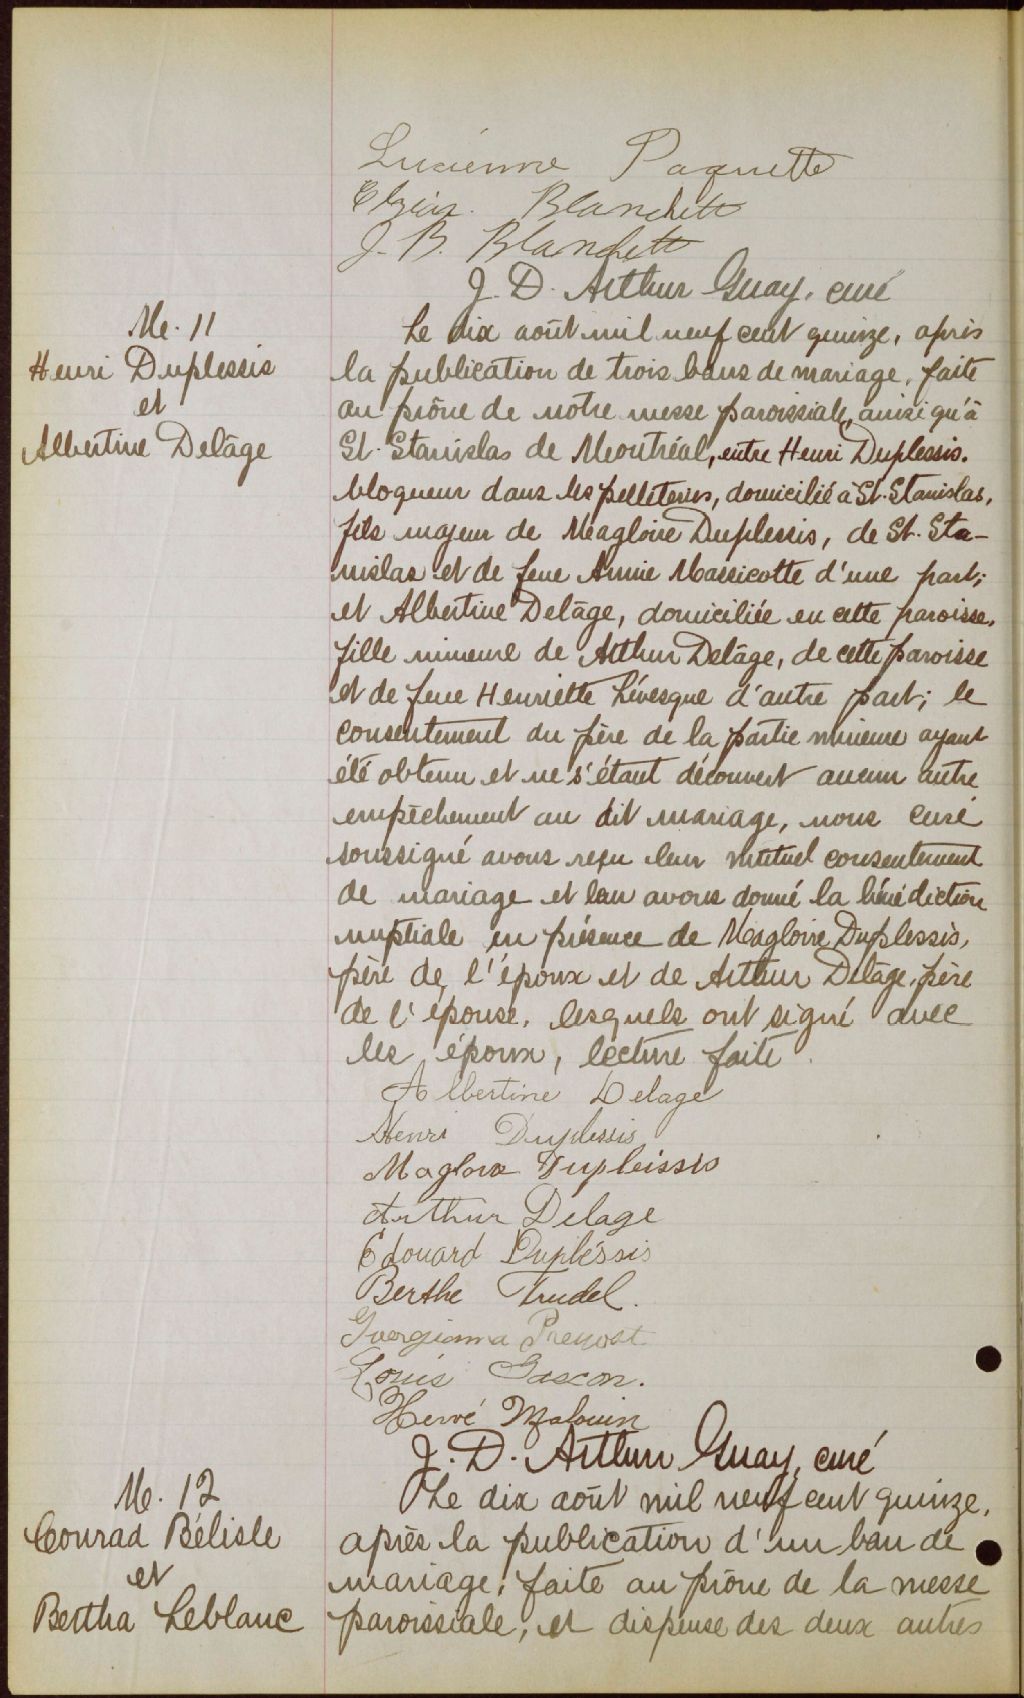 Lucienne Paquette
Elzéar Blanchette
J. B. Blanchette
J. D. Arthur Guay, curé
M. 11
Henri Duplessis
et
Albertine Delâge
Le dix août mil neuf cent quinze, après
la publication de trois bans de mariage, faite
au prône de notre messe paroissiale, ainsi qu'à
St. Stanislas de Montréal, entre Henri Duplessis,
bloqueur dans les pelleteries, domicilié à St. Stanislas,
fils majeur de Magloire Duplessis, de St. Sta-
nislas et de feue Annie Massicotte d'une part;
et Albertine Delâge, domiciliée en cette paroisse,
fille mineure de Arthur Delâge, de cette paroisse
et de feue Henriette Lévesque d'autre part; le
consentement du père de la partie mineure ayant
été obtenu et ne s'étant découvert aucun autre
empêchement au dit mariage, nous curé
soussigné avons reçu leur mutuel consentement
de mariage et leur avons donné la bénédiction
nuptiale en présence de Magloire Duplessis,
père de l'époux et de Arthur Delâge, père
de l'épouse, lesquels ont signé avec
les époux, lecture faite.
Albertine Delage
Henri Duplessis
Magloire Dupleissis
Arthur Delage
Edouard Dupléssis
Berthe Trudel.
Georgianna Prevost
Louis Gascon.
Hervé Malouin
J. D. Arthur Guay, curé
M. 12
Conrad Bélisle
et
Bertha Leblanc
Le dix août mil neuf cent quinze,
après la publication d'un ban de
mariage, faite au prône de la messe
paroissiale, et dispense des deux autres